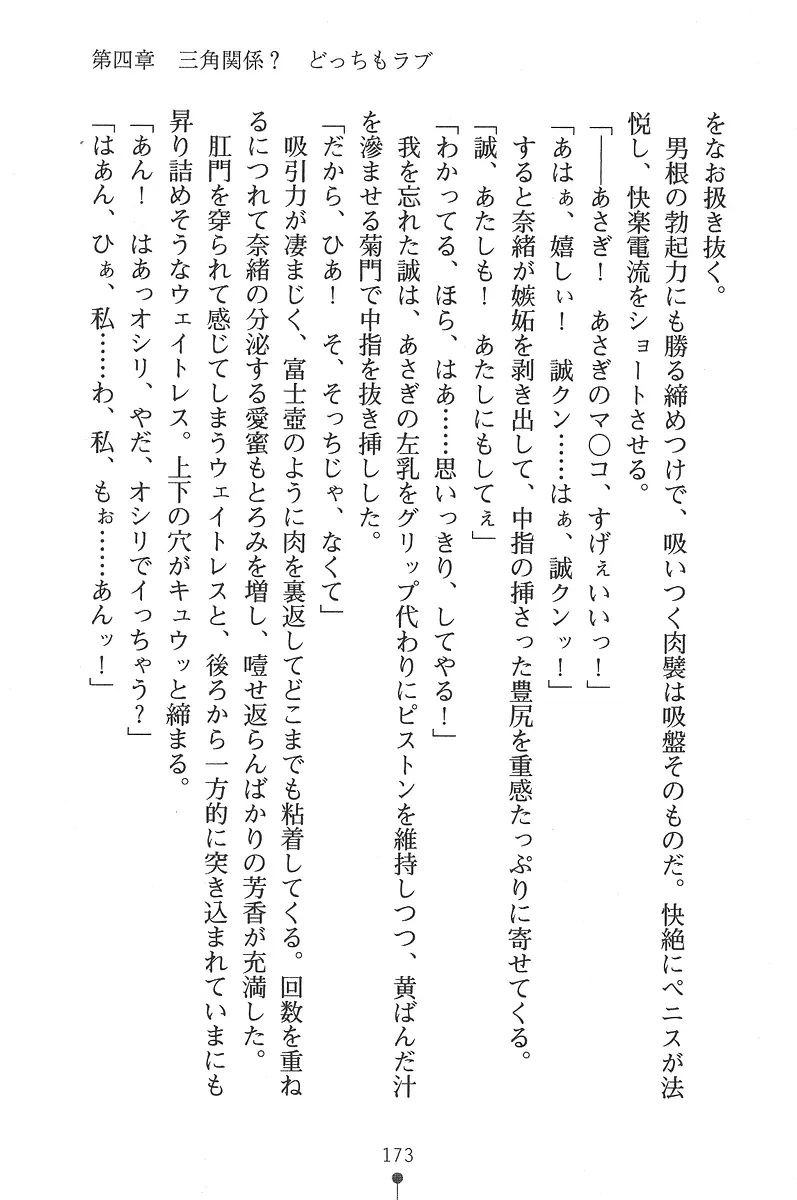 第四章　三角関係？　どっちもラブ
をなお扱き抜く。
　男根の勃起力にも勝る締めつけで、吸いつく肉襞は吸盤そのものだ。快絶にペニスが法
悦し、快楽電流をショートさせる。
「――あさぎ！　あさぎのマ〇コ、すげぇいいっ！」
「あはぁ、嬉しぃ！　誠クン……はぁ、誠クンッ！」
　すると奈緒が嫉妬を剥き出して、中指の挿さった豊尻を重感たっぷりに寄せてくる。
「誠、あたしも！　あたしにもしてぇ」
「わかってる、ほら、はあ……思いっきり、してやる！」
　我を忘れた誠は、あさぎの左乳をグリップ代わりにピストンを維持しつつ、黄ばんだ汁
を滲ませる菊門で中指を抜き挿しした。
「だから、ひあ！　そ、そっちじゃ、なくて」
　吸引力が凄まじく、富士壺のように肉を裏返してどこまでも粘着してくる。回数を重ね
るにつれて奈緒の分泌する愛蜜もとろみを増し、噎せ返らんばかりの芳香が充満した。
　肛門を穿られて感じてしまうウェイトレスと、後ろから一方的に突き込まれていまにも
昇り詰めそうなウェイトレス。上下の穴がキュウッと締まる。
「あん！　はあっオシリ、やだ、オシリでイっちゃう？」
「はあん、ひぁ、私……わ、私、もぉ……あんッ！」
173